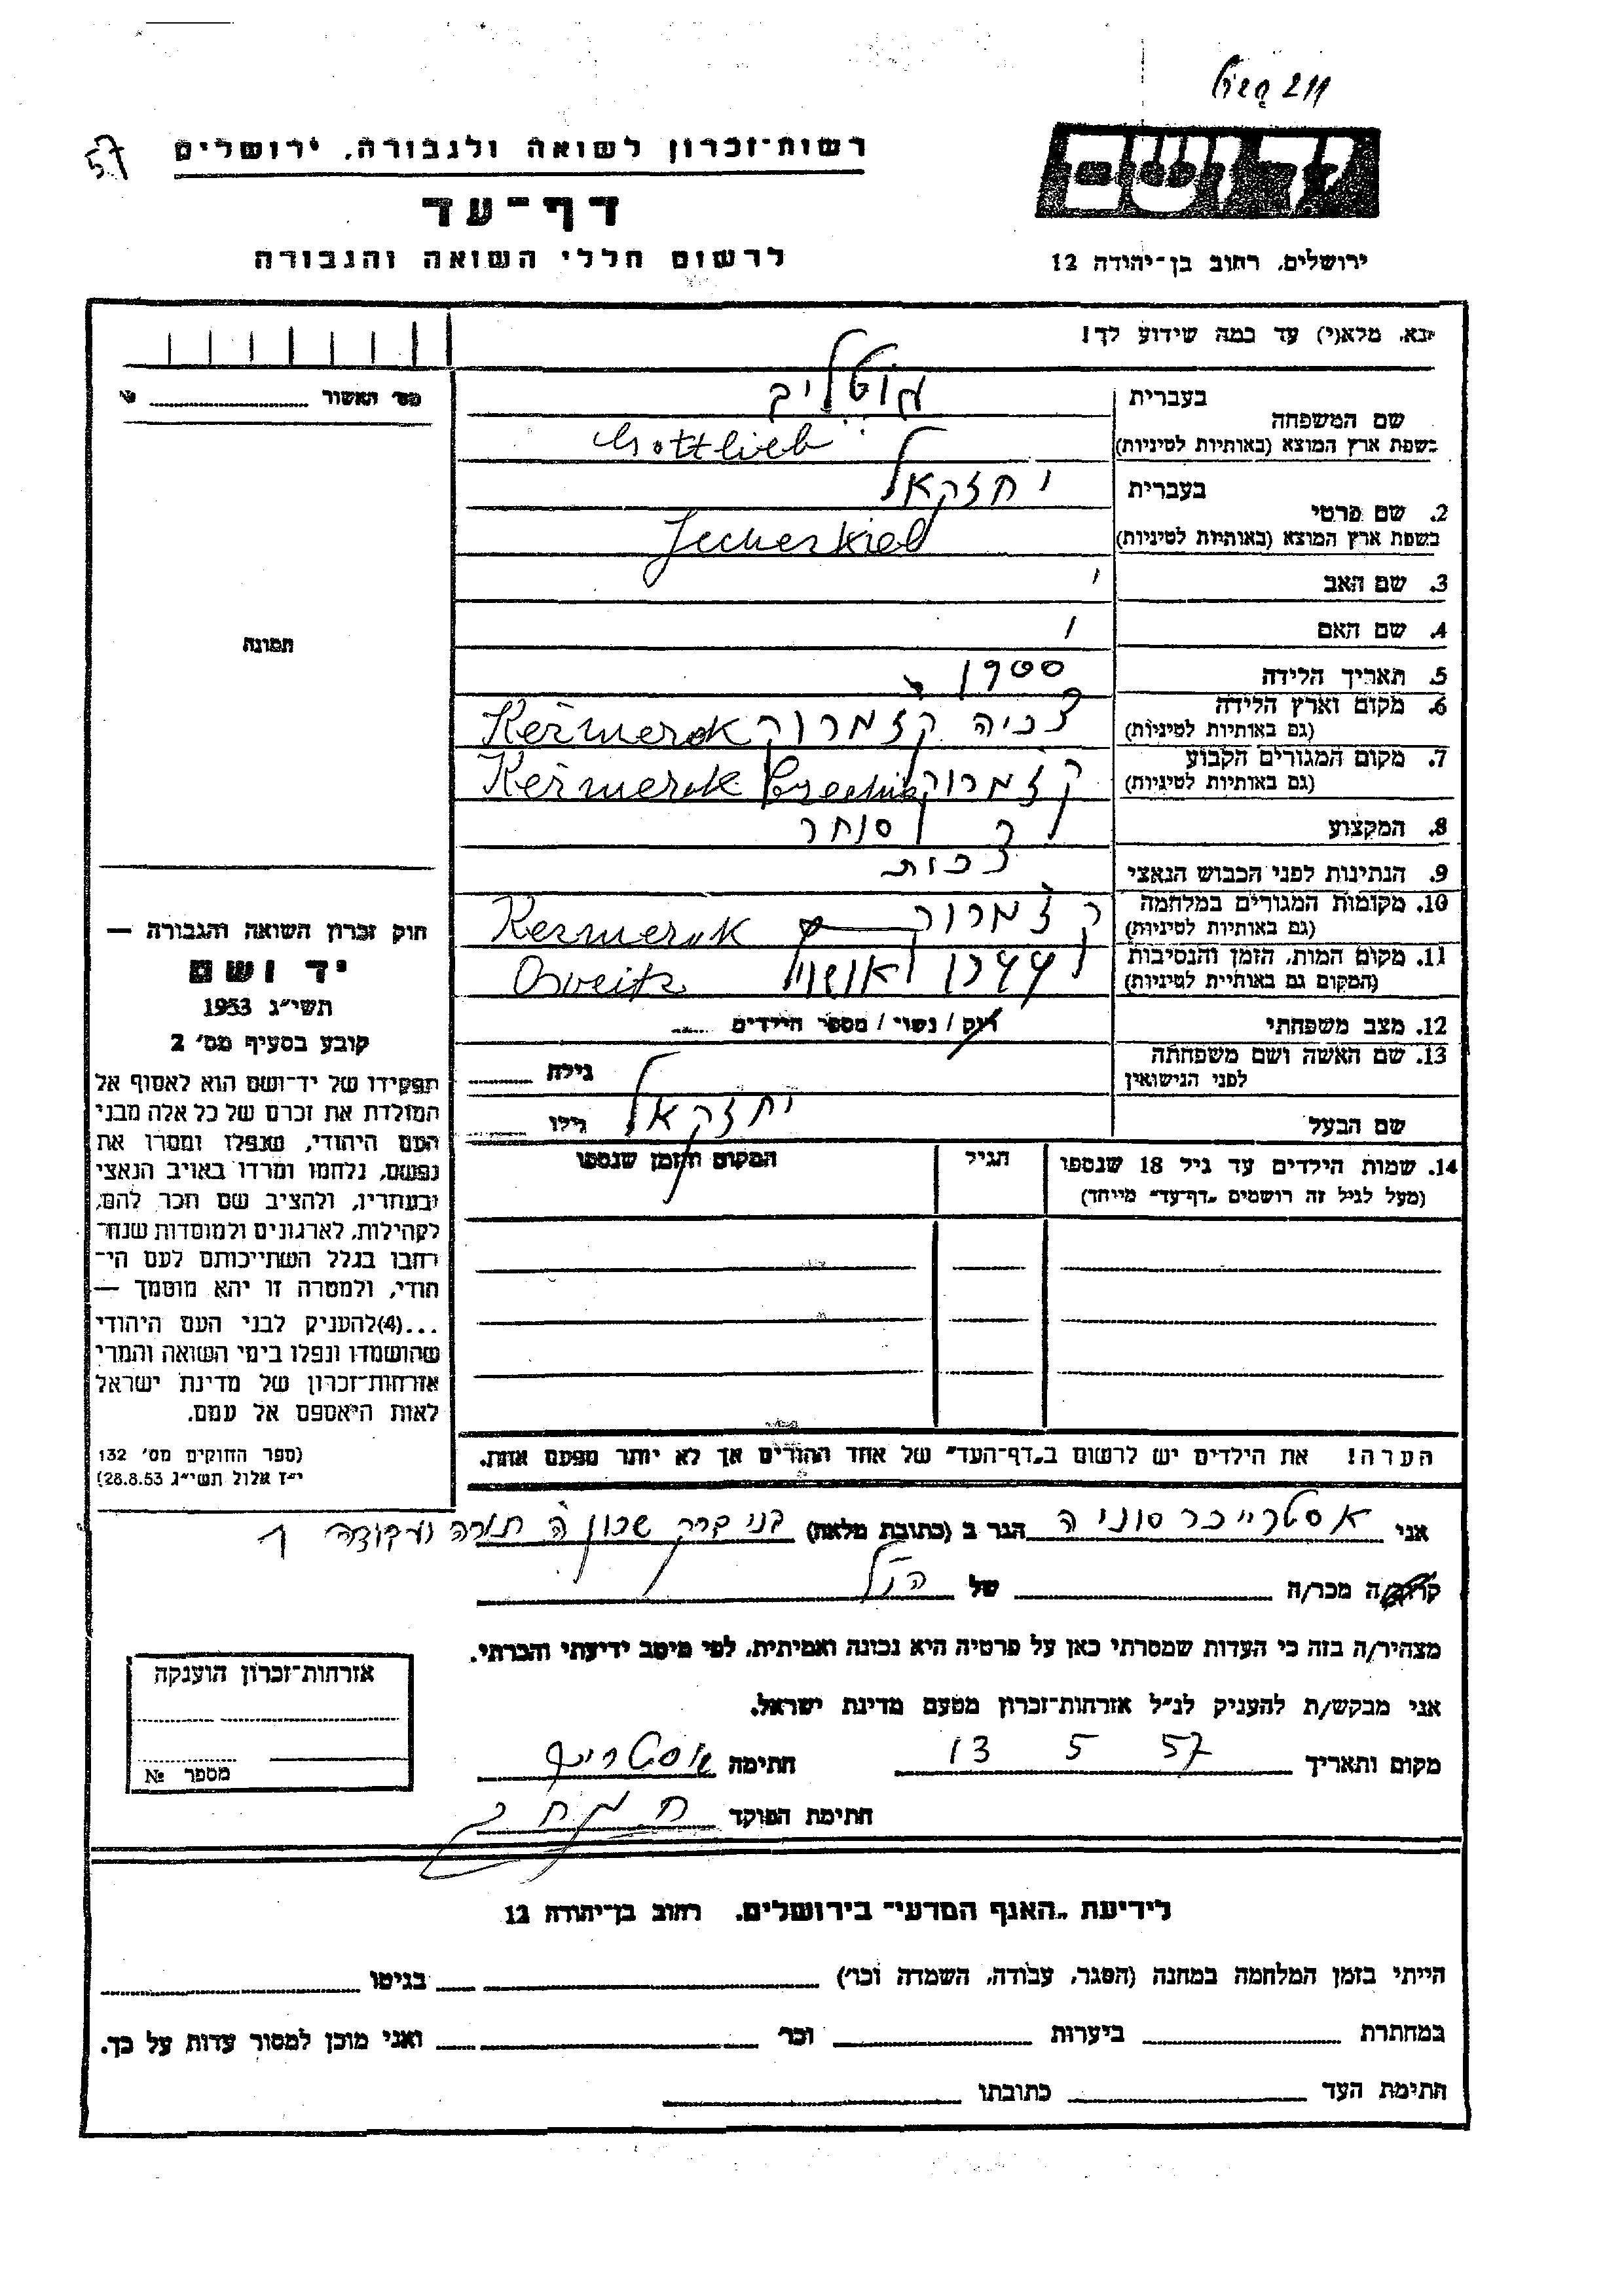 57
רשות־זכרון לשואה ולגבורה, ירושלים
דף־עד
לרשום חללי השואה והגבורה
יד ושם
ירושלים, רחוב בן־יהודה 12
נא, מלא(י) עד כמה שידוע לך!
מס' האשור №
תמונה
שם המשפחה בעברית גוטליב
בשפת ארץ המוצא (באותיות לטיניות) Gottlieb
2. שם פרטי בעברית יחזקאל
בשפת ארץ המוצא (באותיות לטיניות) Jecheskiel
3. שם האב
4. שם האם
5. תאריך הלידה 1900
6. מקום וארץ הלידה (גם באותיות לטיניות) צכיה קזמרוק Kežmerok
7. מקום המגורים הקבוע (גם באותיות לטיניות) קזמרוק Kežmerok
8. המקצוע סוחר
9. הנתינות לפני הכבוש הנאצי צכית
10. מקומות המגורים במלחמה (גם באותיות לטיניות) קזמרוק Kezmerok
11. מקום המות, הזמן והנסיבות (המקום גם באותיית לטיניות) 1944 Osveitz
12. מצב משפחתי רווק / נשוי / מספר הילדים
13. שם האשה ושם משפחתה לפני הנישואין גילה
שם הבעל יחזקאל גילו
14. שמות הילדים עד גיל 18 שנספו הגיל המקום והזמן שנספו
(מעל לגיל זה רושמים „דף־עד״ מייחד)
הערה! את הילדים יש לרשום ב„דף־העד״ של אחד ההורים אך לא יותר מפעם אחת.
חוק זכרון השואה והגבורה —
יד ושם
תשי״ג 1953
קובע בסעיף מס׳ 2
תפקידו של יד־ושם הוא לאסוף אל
המולדת את זכרם של כל אלה מבני
העם היהודי, שנפלו ומסרו את
נפשם, נלחמו ומרדו באויב הנאצי
ובעוזריו, ולהציב שם וזכר להם,
לקהילות, לארגונים ולמוסדות שנח־
רחבו בגלל השתייכותם לעם הי־
הודי, ולמטרה זו יהא מוסמך —
...(4)להעניק לבני העם היהודי
שהושמדו ונפלו בימי השואה והמרי
אזרחות־זכרון של מדינת ישראל
לאות היאספם אל עמם.
(ספר החוקים מס׳ 132
י״ז אלול תשי״ג 28.8.53)
אני אסטרייכר סוניה הגר ב (כתובת מלאה) בני ברק שכון ה תורה ועבודה 1
קרוב/ה מכר/ה של הנ״ל
מצהיר/ה בזה כי העדות שמסרתי כאן על פרטיה היא נכונה ואמיתית, לפי מיטב ידיעתי והכרתי.
אני מבקש/ת להעניק לנ״ל אזרחות־זכרון מטעם מדינת ישראל.
מקום ותאריך 13 5 57 חתימה
חתימת הפוקד
אזרחות־זכרון הוענקה
מספר №
לידיעת „האגף המדעי״ בירושלים, רחוב בן־יהודה 12
הייתי בזמן המלחמה במחנה (הסגר, עבודה, השמדה וכו׳) בגיטו
במחתרת ביערות וכו׳ ואני מוכן למסור עדות על כך.
חתימת העד כתובתו